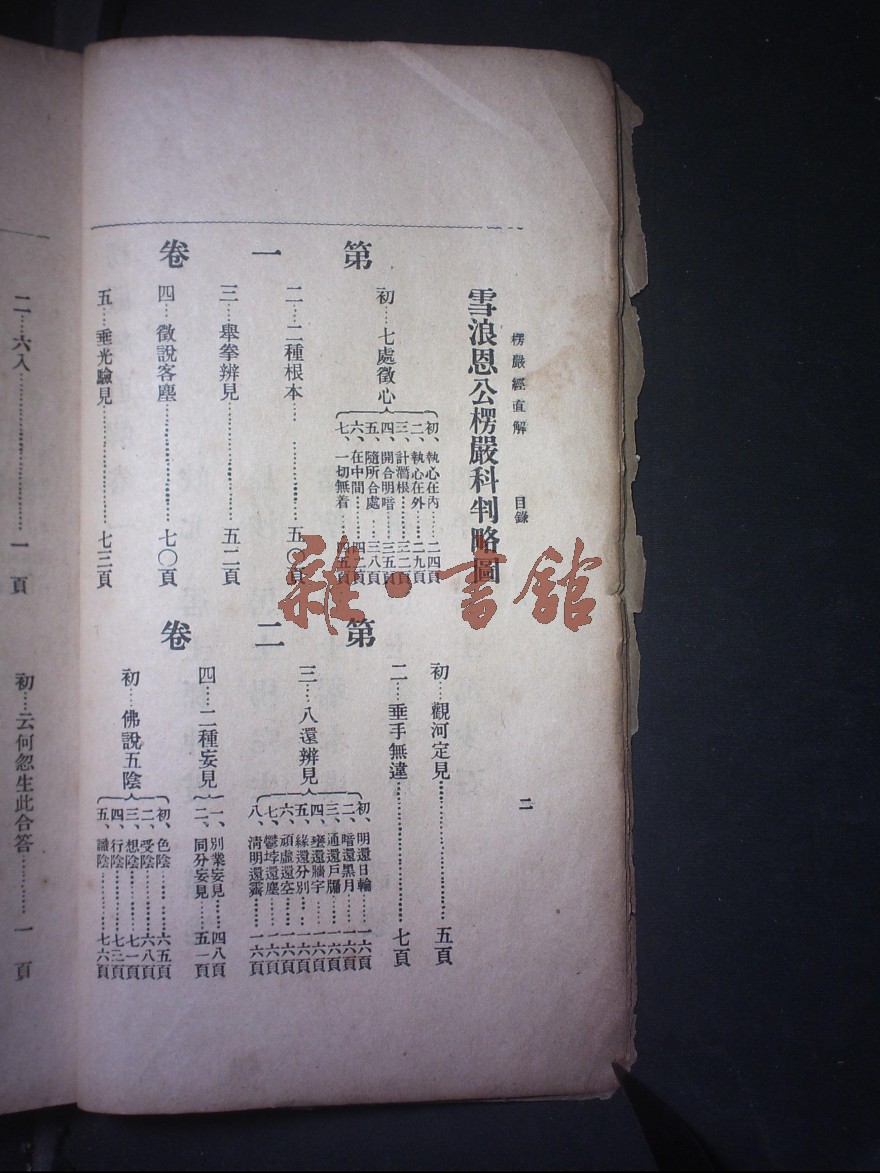 楞嚴經直解　目錄　二
雪浪恩公楞嚴科判略圖
第一卷
初……七處徵心
初、執心在內……二四頁
二、執心在外……二九頁
三、計潛根……三二頁
四、開合明暗……三五頁
五、隨所合處……三八頁
六、在中間……四二頁
七、一切無着……四五頁
二……二種根本……五〇頁
三……舉拳辨見……五二頁
四……徵說客塵……七〇頁
五……垂光驗見……七三頁
第二卷
初……觀河定見……五頁
二……垂手無違……七頁
三……八還辨見
初、明還日輪……一六頁
二、暗還黑月……一六頁
三、通還戶牖……一六頁
四、壅還牆宇……一六頁
五、緣還分別……一六頁
六、頑虛還空……一六頁
七、鬱𡋯還塵……一六頁
八、清明還霽……一六頁
四……二種妄見
一、別業妄見……四八頁
二、同分妄見……五一頁
初……佛說五陰
初、色陰……六五頁
二、受陰……六八頁
三、想陰……七一頁
四、行陰……七三頁
五、識陰……七六頁
二……六入……一頁
初……云何忽生此合答……一頁
雜·書館